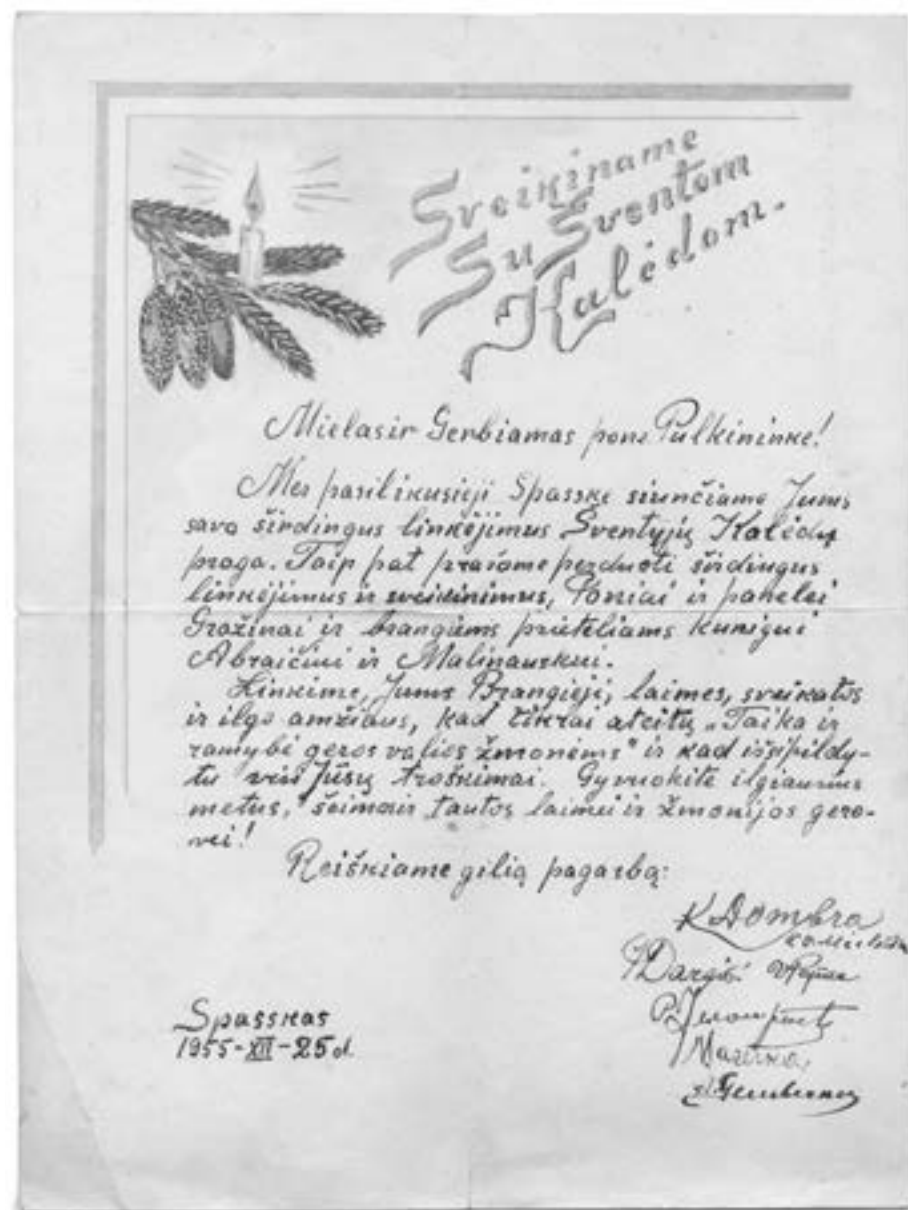 Sveikiname
Su Šventom
Kalėdom.
Mielas ir Gerbiamas pone Pulkininke!
Mes pasilikusieji Spasske siunčiame Jums
savo širdingus linkėjimus Šventųjų Kalėdų
proga. Taip pat prašome perduoti širdingus
linkėjimus ir sveikinimus, Poniai ir panelei
Gražinai ir brangiems prieteliams kunigui
Abraičiui ir Malinauskui.
Linkime, Jums Brangieji, laimes, sveikatos
ir ilgo amžiaus, kad tikrai ateitų „Taika ir
ramybė geros valios žmonėms" ir kad išsipildy-
tu visi Jūsų troškimai. Gyvuokite ilgiausius
metus, šeimos ir tautos laimei ir žmonijos gero-
vei!
Reiškiame gilią pagarbą:
K Dombra
Dargis
Spasskas
1955-XII-25 d.